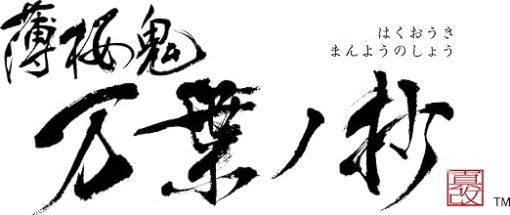 薄桜鬼
はくおうき
まんようのしょう
万葉ノ抄
真改
TM